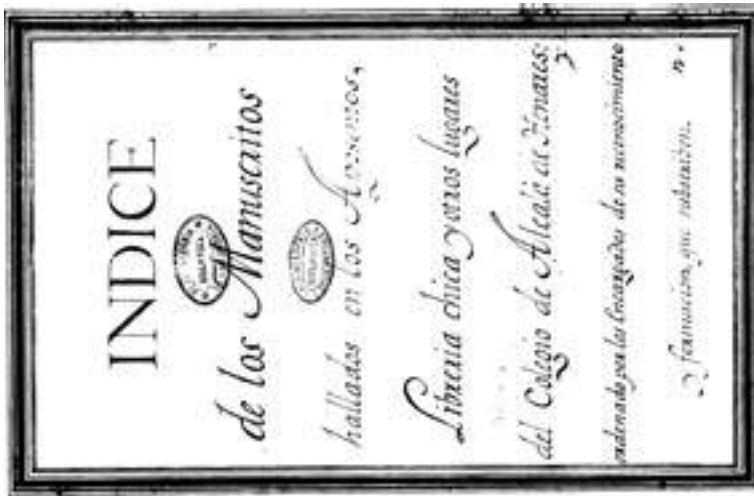 INDICE
de los Manuscritos
hallados en los Aposentos,
Libreria chica y otros lugares
del Colegio de Alcalá de Henares:
ordenado por los Encargados de su reconocimiento
y formacion, que subscriben.